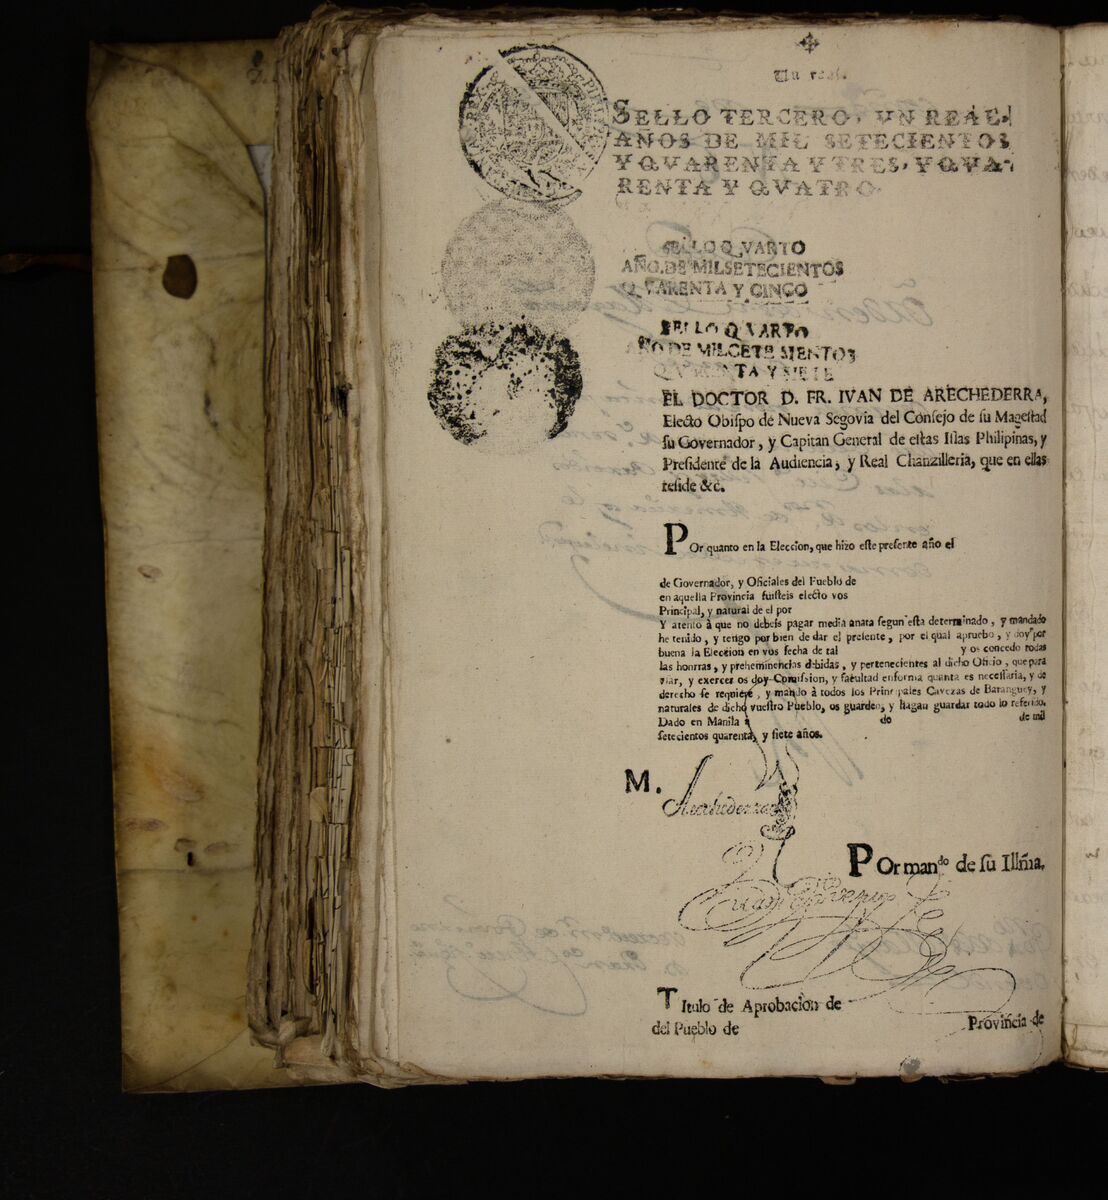 Un real.
SELLO TERCERO, VN REAL.
AÑOS DE MIL SETECIENTOS
Y QVARENTA Y TRES, Y QVA-
RENTA Y QVATRO.
SELLO QVARTO
AÑO. DE MILSETECIENTOS
QVARENTA Y CINCO
SELLO QVARTO
AÑO DE MILCETESIENTOS
QVARENTA Y SIETE
EL DOCTOR D. FR. IVAN DE ARECHEDERRA,
Electo Obispo de Nueva Segovia del Consejo de su Magestad
su Governador, y Capitan General de estas Islas Philipinas, y
Presidente de la Audiencia, y Real Chanzilleria, que en ellas
reside &c.
POr quanto en la Eleccion, que hizo este presente año el
de Governador, y Oficiales del Pueblo de
en aquella Provincia fuisteis electo vos
Principal, y natural de el por
Y atento à que no debeis pagar media anata segun esta determinado, y mandado
he tenido, y tengo por bien de dar el presente, por el qual apruebo, y doy por
buena la Eleccion en vos fecha de tal y os concedo todas
las honrras, y preheminencias debidas, y pertenecientes al dicho Oficio, que para
usar, y exercer os doy Comission, y facultad enforma quanta es necessaria, y de
derecho se requiere, y mando à todos los Principales Cavezas de Baranguey, y
naturales de dicho vuestro Pueblo, os guarden, y hagan guardar todo lo referido.
Dado en Manila à de de mil
setecientos quarenta, y siete años.
M.
Arechederra
POr man.do de su Illm̃a.
TItulo de Aprobacion de
del Pueblo de Provincia de